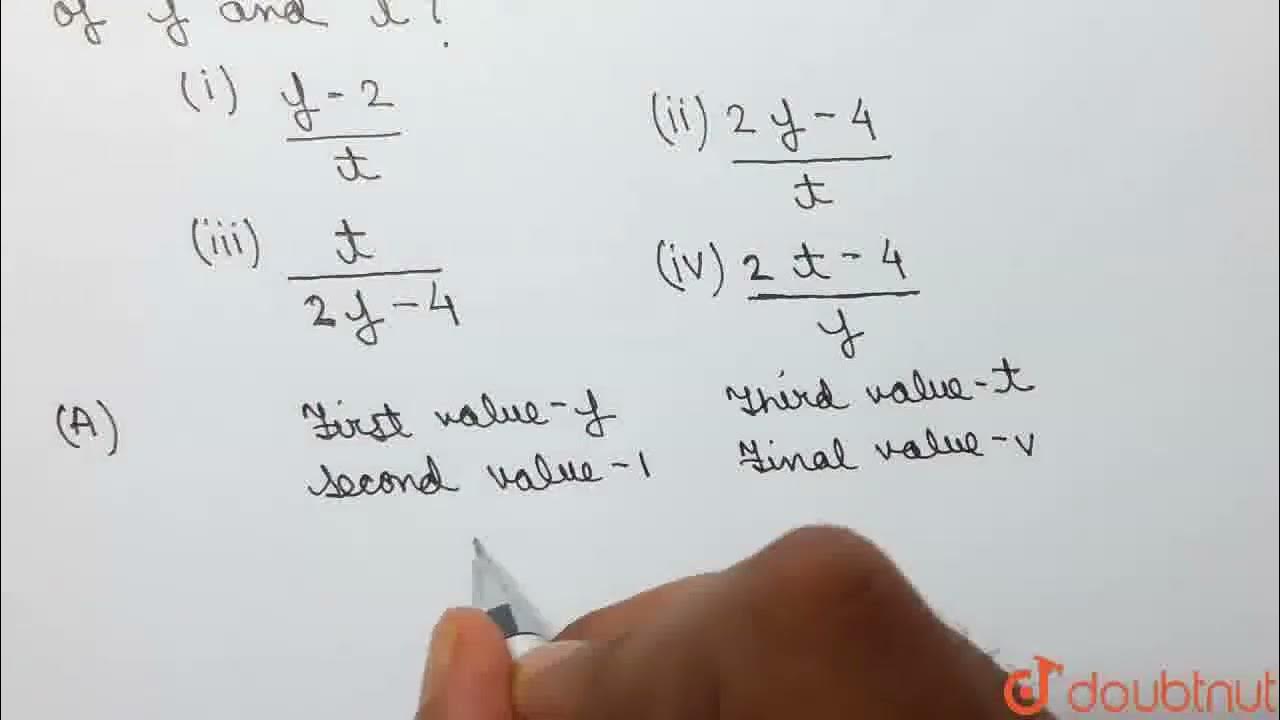 of y and t?
(i) y - 2 / t
(ii) 2y - 4 / t
(iii) t / 2y - 4
(iv) 2t - 4 / y
(A) First value - y Third value - t
Second value - 1 Final value - v
doubtnut